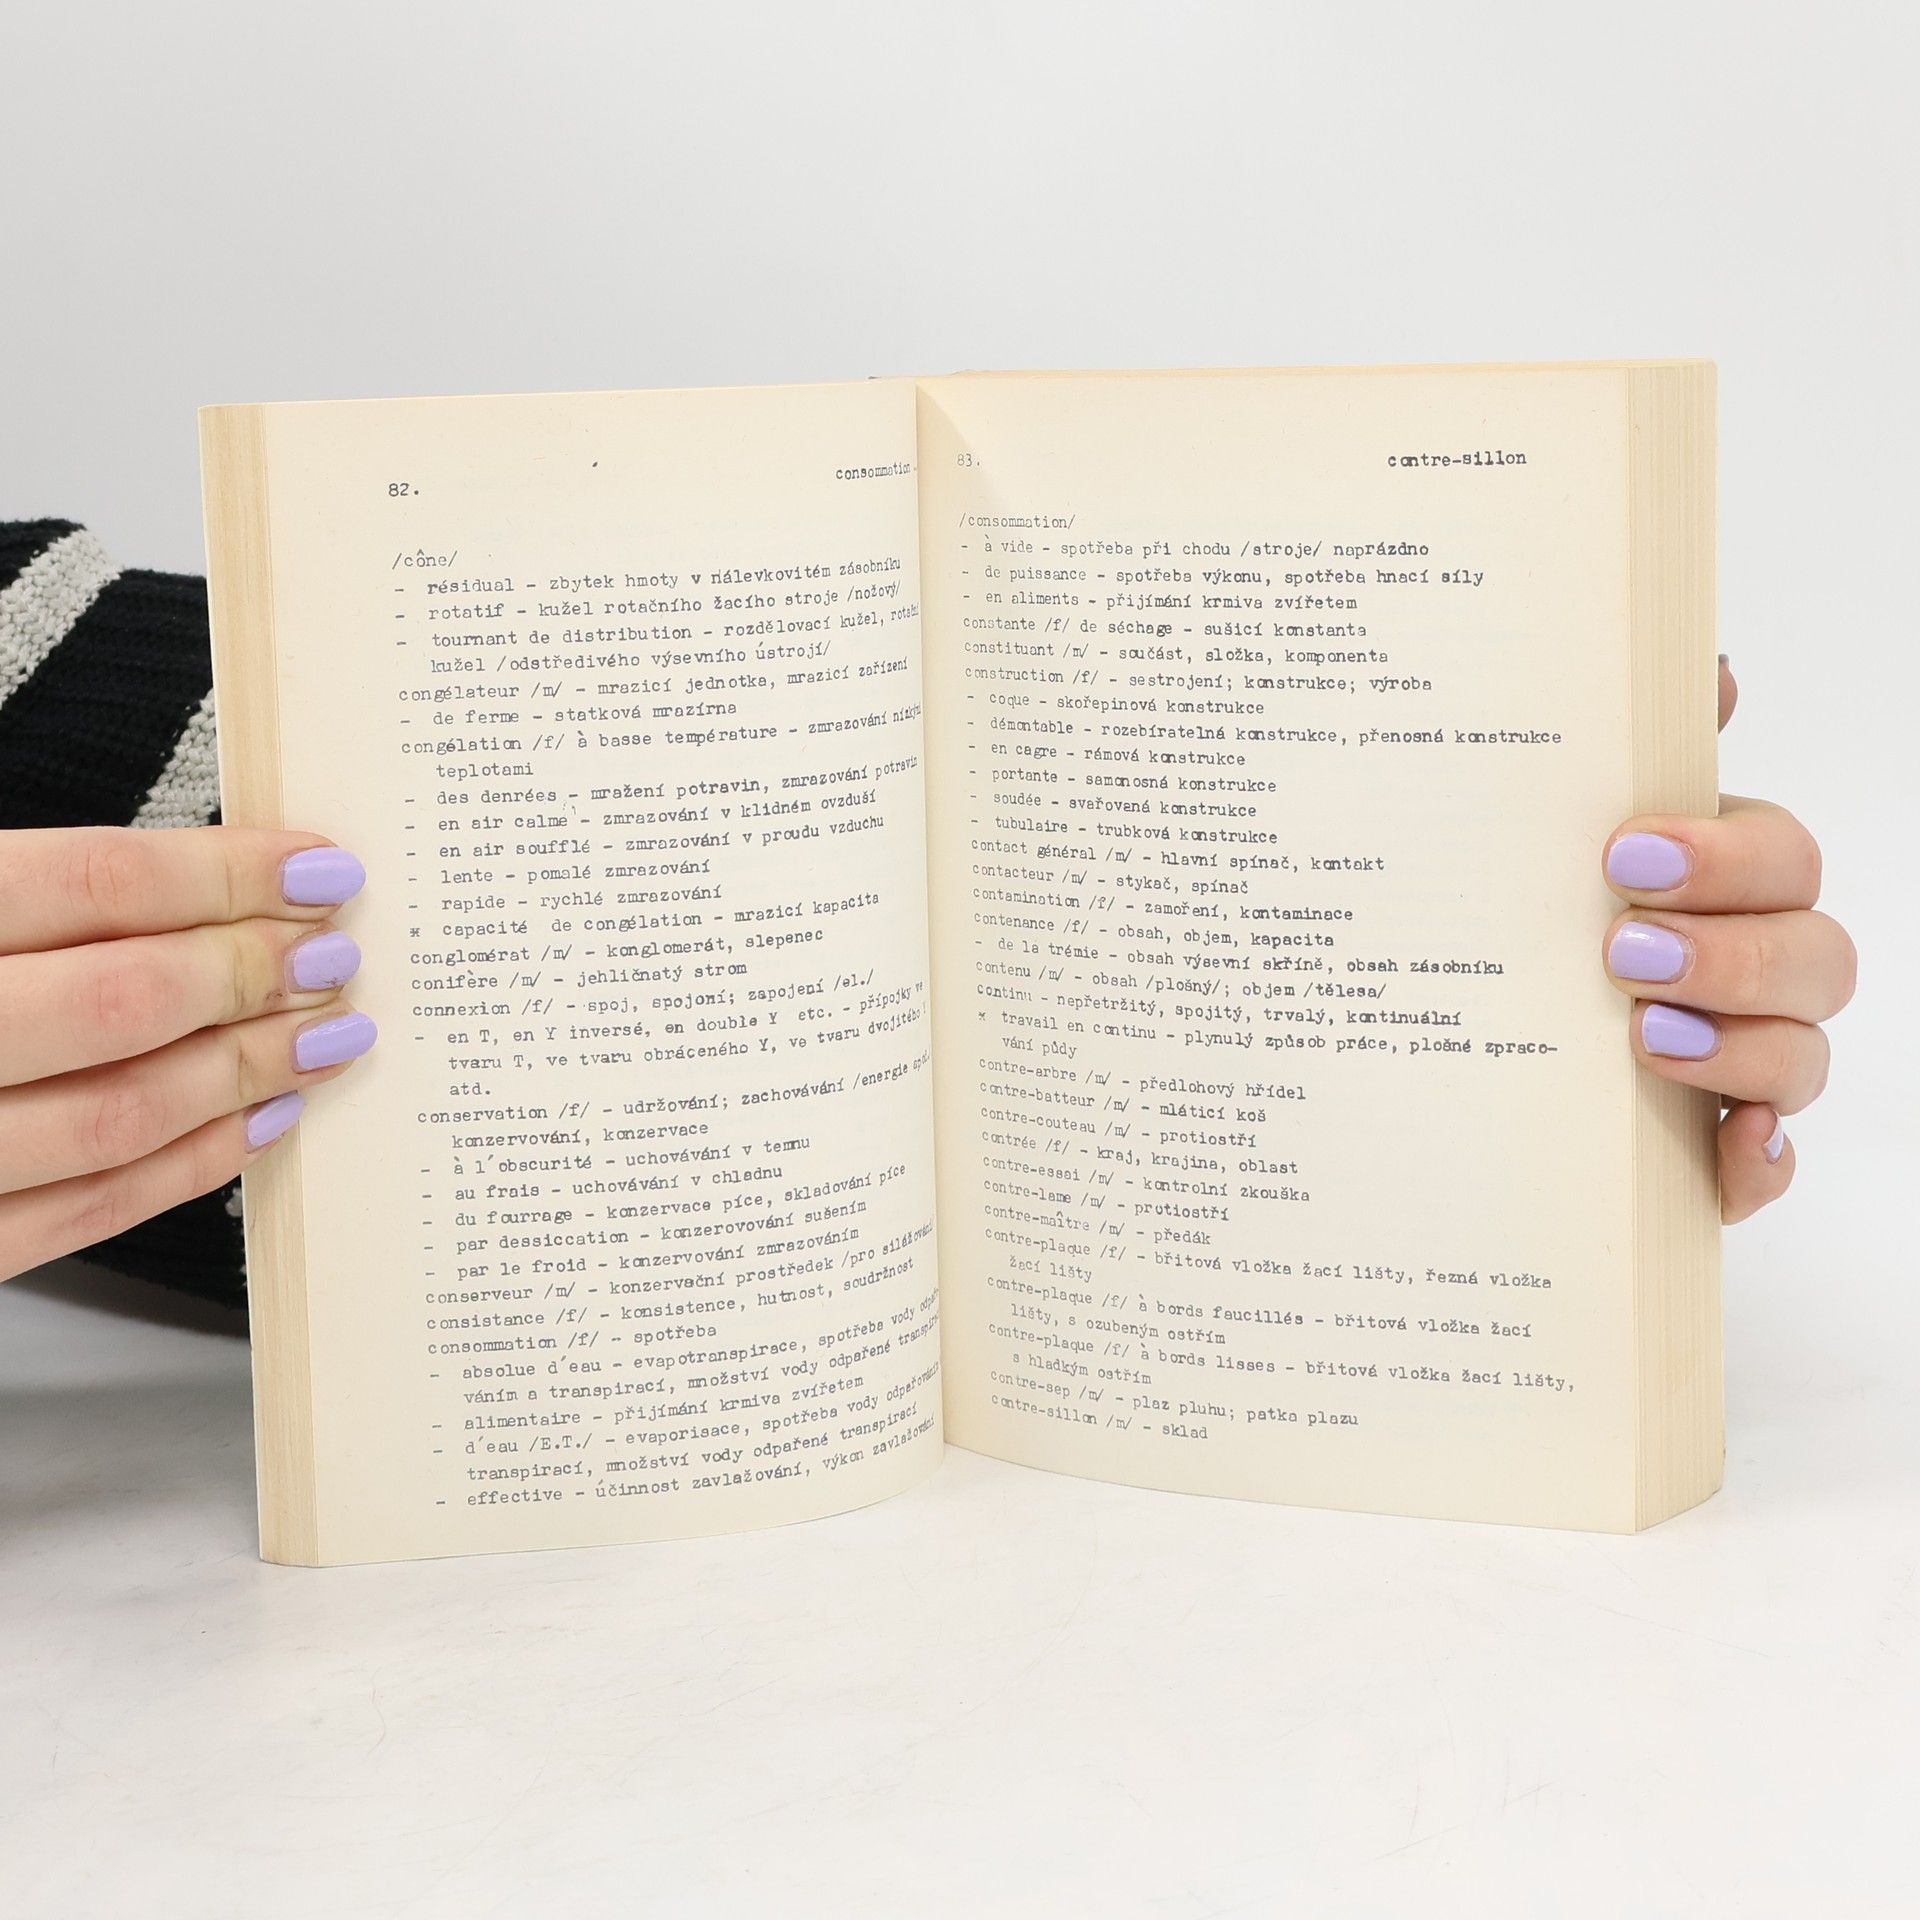 82.
consommation
/cône/
- résidual - zbytek hmoty v nálevkovitém zásobníku
- rotatif - kužel rotačního žacího stroje /nožový/
- tournant de distribution - rozdělovací kužel, rotační
kužel /odstředivého výsevního ústrojí/
congélateur /m/ - mrazicí jednotka, mrazicí zařízení
- de ferme - statková mrazírna
congélation /f/ à basse température - zmrazování nízkými
teplotami
- des denrées - mražení potravin, zmrazování potravin
- en air calme - zmrazování v klidném ovzduší
- en air soufflé - zmrazování v proudu vzduchu
- lente - pomalé zmrazování
- rapide - rychlé zmrazování
* capacité de congélation - mrazicí kapacita
conglomérat /m/ - konglomerát, slepenec
conifère /m/ - jehličnatý strom
connexion /f/ - spoj, spojoní; zapojení /el./
- en T, en Y inversé, en double Y etc. - přípojky ve
tvaru T, ve tvaru obráceného Y, ve tvaru dvojitého Y
atd.
conservation /f/ - udržování; zachovávání /energie
konzervování, konzervace
- à l´obscurité - uchovávání v temnu
- au frais - uchovávání v chladnu
- du fourrage - konzervace píce, skladování píce
- par dessiccation - konzerovování sušením
- par le froid - konzervování zmrazováním
conserveur /m/ - konzervační prostředek /pro silážování/
consistance /f/ - konsistence, hutnost, soudržnost
consommation /f/ - spotřeba
- absolue d´eau - evapotranspirace, spotřeba vody
váním a transpirací, množství vody odpařené
- alimentaire - přijímání krmiva zvířetem
- d´eau /E.T./ - evaporisace, spotřeba vody odpařováním
transpirací, množství vody odpařené transpirací
- effective - účinnost zavlažování, výkon zavlažování
83.
contre-sillon
/consommation/
- à vide - spotřeba při chodu /stroje/ naprázdno
- de puissance - spotřeba výkonu, spotřeba hnací síly
- en aliments - přijímání krmiva zvířetem
constante /f/ de séchage - sušicí konstanta
constituant /m/ - součást, složka, komponenta
construction /f/ - sestrojení; konstrukce; výroba
- coque - skořepinová konstrukce
- démontable - rozebíratelná konstrukce, přenosná konstrukce
- en cagre - rámová konstrukce
- portante - samonosná konstrukce
- soudée - svařovaná konstrukce
- tubulaire - trubková konstrukce
contact général /m/ - hlavní spínač, kontakt
contacteur /m/ - stykač, spínač
contamination /f/ - zamoření, kontaminace
contenance /f/ - obsah, objem, kapacita
- de la trémie - obsah výsevní skříně, obsah zásobníku
contenu /m/ - obsah /plošný/; objem /tělesa/
continu - nepřetržitý, spojitý, trvalý, kontinuální
* travail en continu - plynulý způsob práce, plošné zpraco-
vání půdy
contre-arbre /m/ - předlohový hřídel
contre-batteur /m/ - mláticí koš
contre-couteau /m/ - protiostří
contrée /f/ - kraj, krajina, oblast
contre-essai /m/ - kontrolní zkouška
contre-lame /m/ - protiostří
contre-maître /m/ - předák
contre-plaque /f/ - břitová vložka žací lišty, řezná vložka
žací lišty
contre-plaque /f/ à bords faucillés - břitová vložka žací
lišty, s ozubeným ostřím
contre-plaque /f/ à bords lisses - břitová vložka žací lišty,
s hladkým ostřím
contre-sep /m/ - plaz pluhu; patka plazu
contre-sillon /m/ - sklad